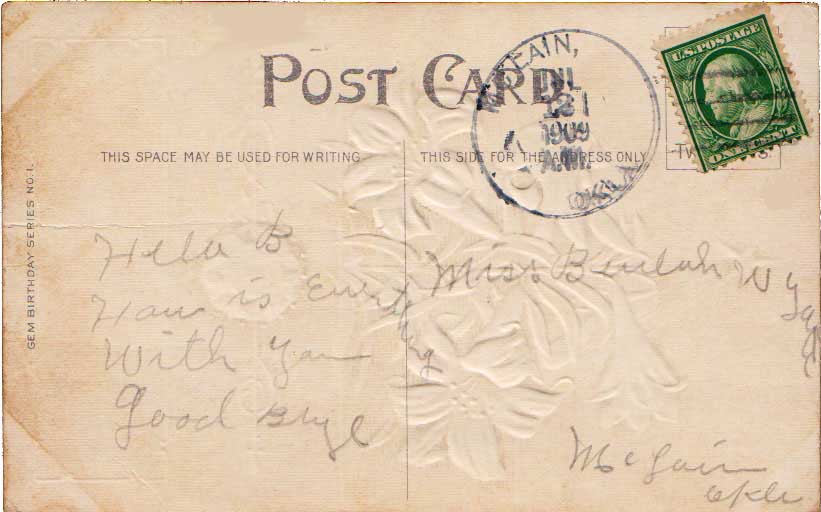 POST CARD
McLAIN,
JUL
121
1909
A.M.
OKLA
U.S. POSTAGE
ONE CENT
THIS SPACE MAY BE USED FOR WRITING
THIS SIDE FOR THE ADDRESS ONLY
GEM BIRTHDAY SERIES NO. 1.
Hello B
How is Everything
With you
Good Bye
Miss Beulah
Mc Lain
Okla